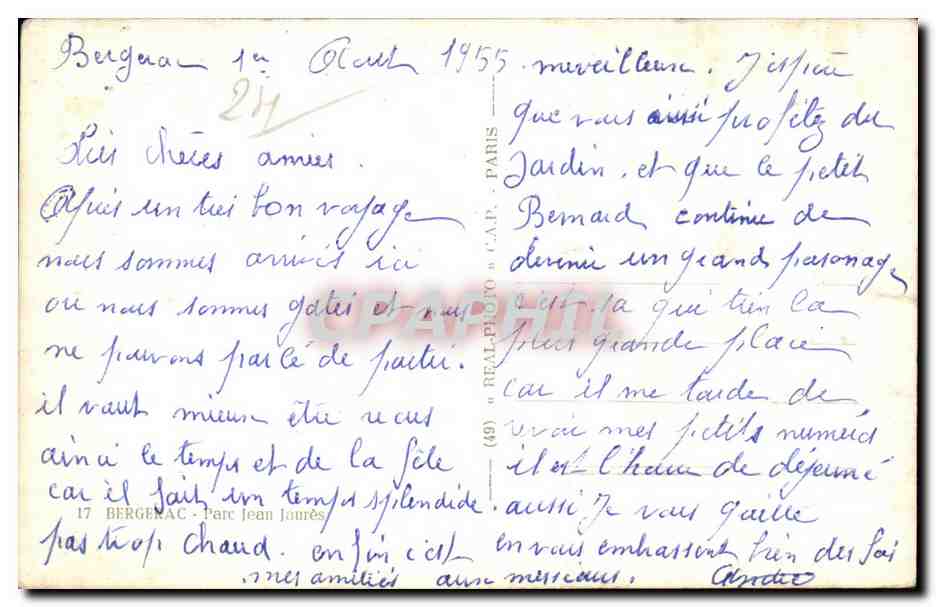 Bergerac 1er Aout 1955
24
Très chères amies.
Après un très bon voyage
nous sommes arrivés ici
ou nous sommes gatés et nous
ne pouvons parlé de partir.
il vaut mieux être recus
ainsi le temps et de la fête
car il fait un temps splendide.
17 BERGERAC - Parc Jean Jaurès
pas trop chaud. enfin c'est
merveilleux. J'espère
que vous aussi profitez du
Jardin. et que le petit
Bernard continue de
devenir un grand personage
c'est sa qui tien la
plus grande place
car il me tarde de
revoir mes petits numéros
il est l'heure de déjeuné
aussi Je vous quitte
en vous embrassent bien des fois
mes amitiés aux messieurs.
(49) « REAL-PHOTO » C.A.P. - PARIS
CPAPHIL